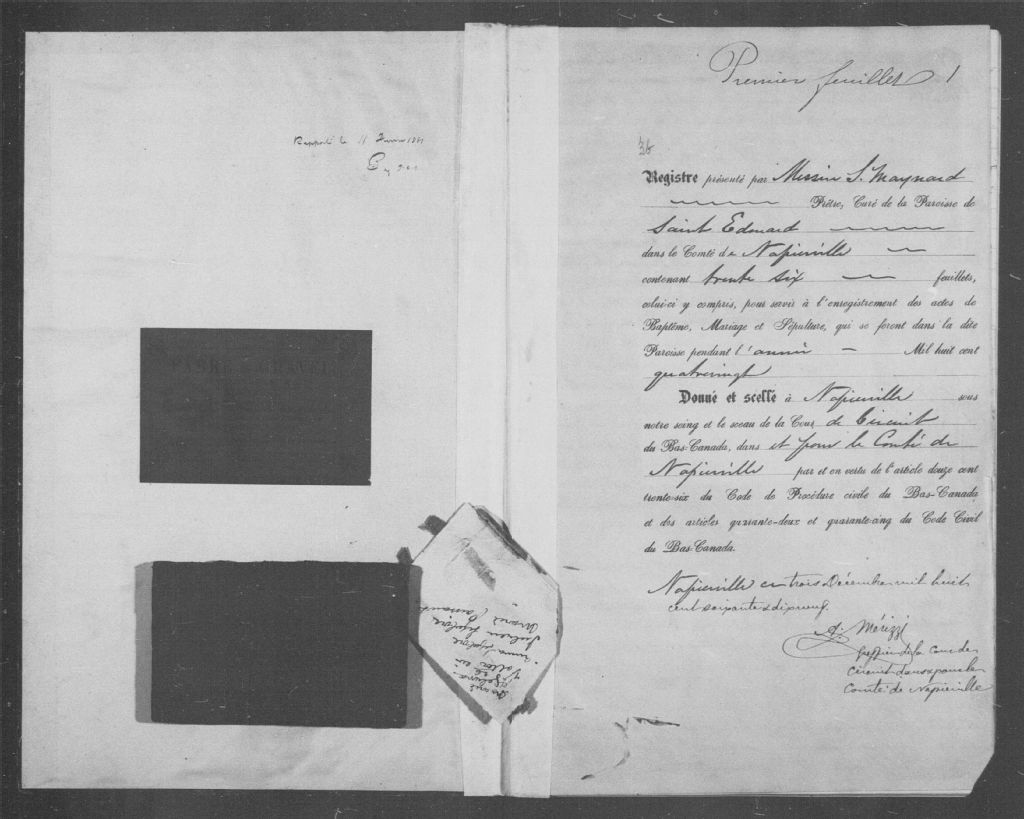 Rapporté le 11
Premier feuillet 1
36
Registre présenté par Messire S. Maynard
Prêtre, Curé de la Paroisse de
Saint Edouard
dans le Comté de Napierville
contenant trente six feuillets,
celui-ci y compris, pour servir à l'enregistrement des actes de
Baptême, Mariage et Sépulture, qui se feront dans la dite
Paroisse pendant l'année Mil huit cent
quatrevingt
Donné et scellé à Napierville sous
notre seing et le sceau de la Cour de Circuit
du Bas-Canada, dans et pour le Comté de
Napierville par et en vertu de l'article douze cent
trente-six du Code de Procédure civile du Bas-Canada
et des articles quarante-deux et quarante-cinq du Code Civil
du Bas-Canada.
Napierville ce trois Décembre mil huit
cent soixante & dixneuf.
A. Mérizzi
Greffier de la Cour de
Circuit dans & pour le
Comté de Napierville